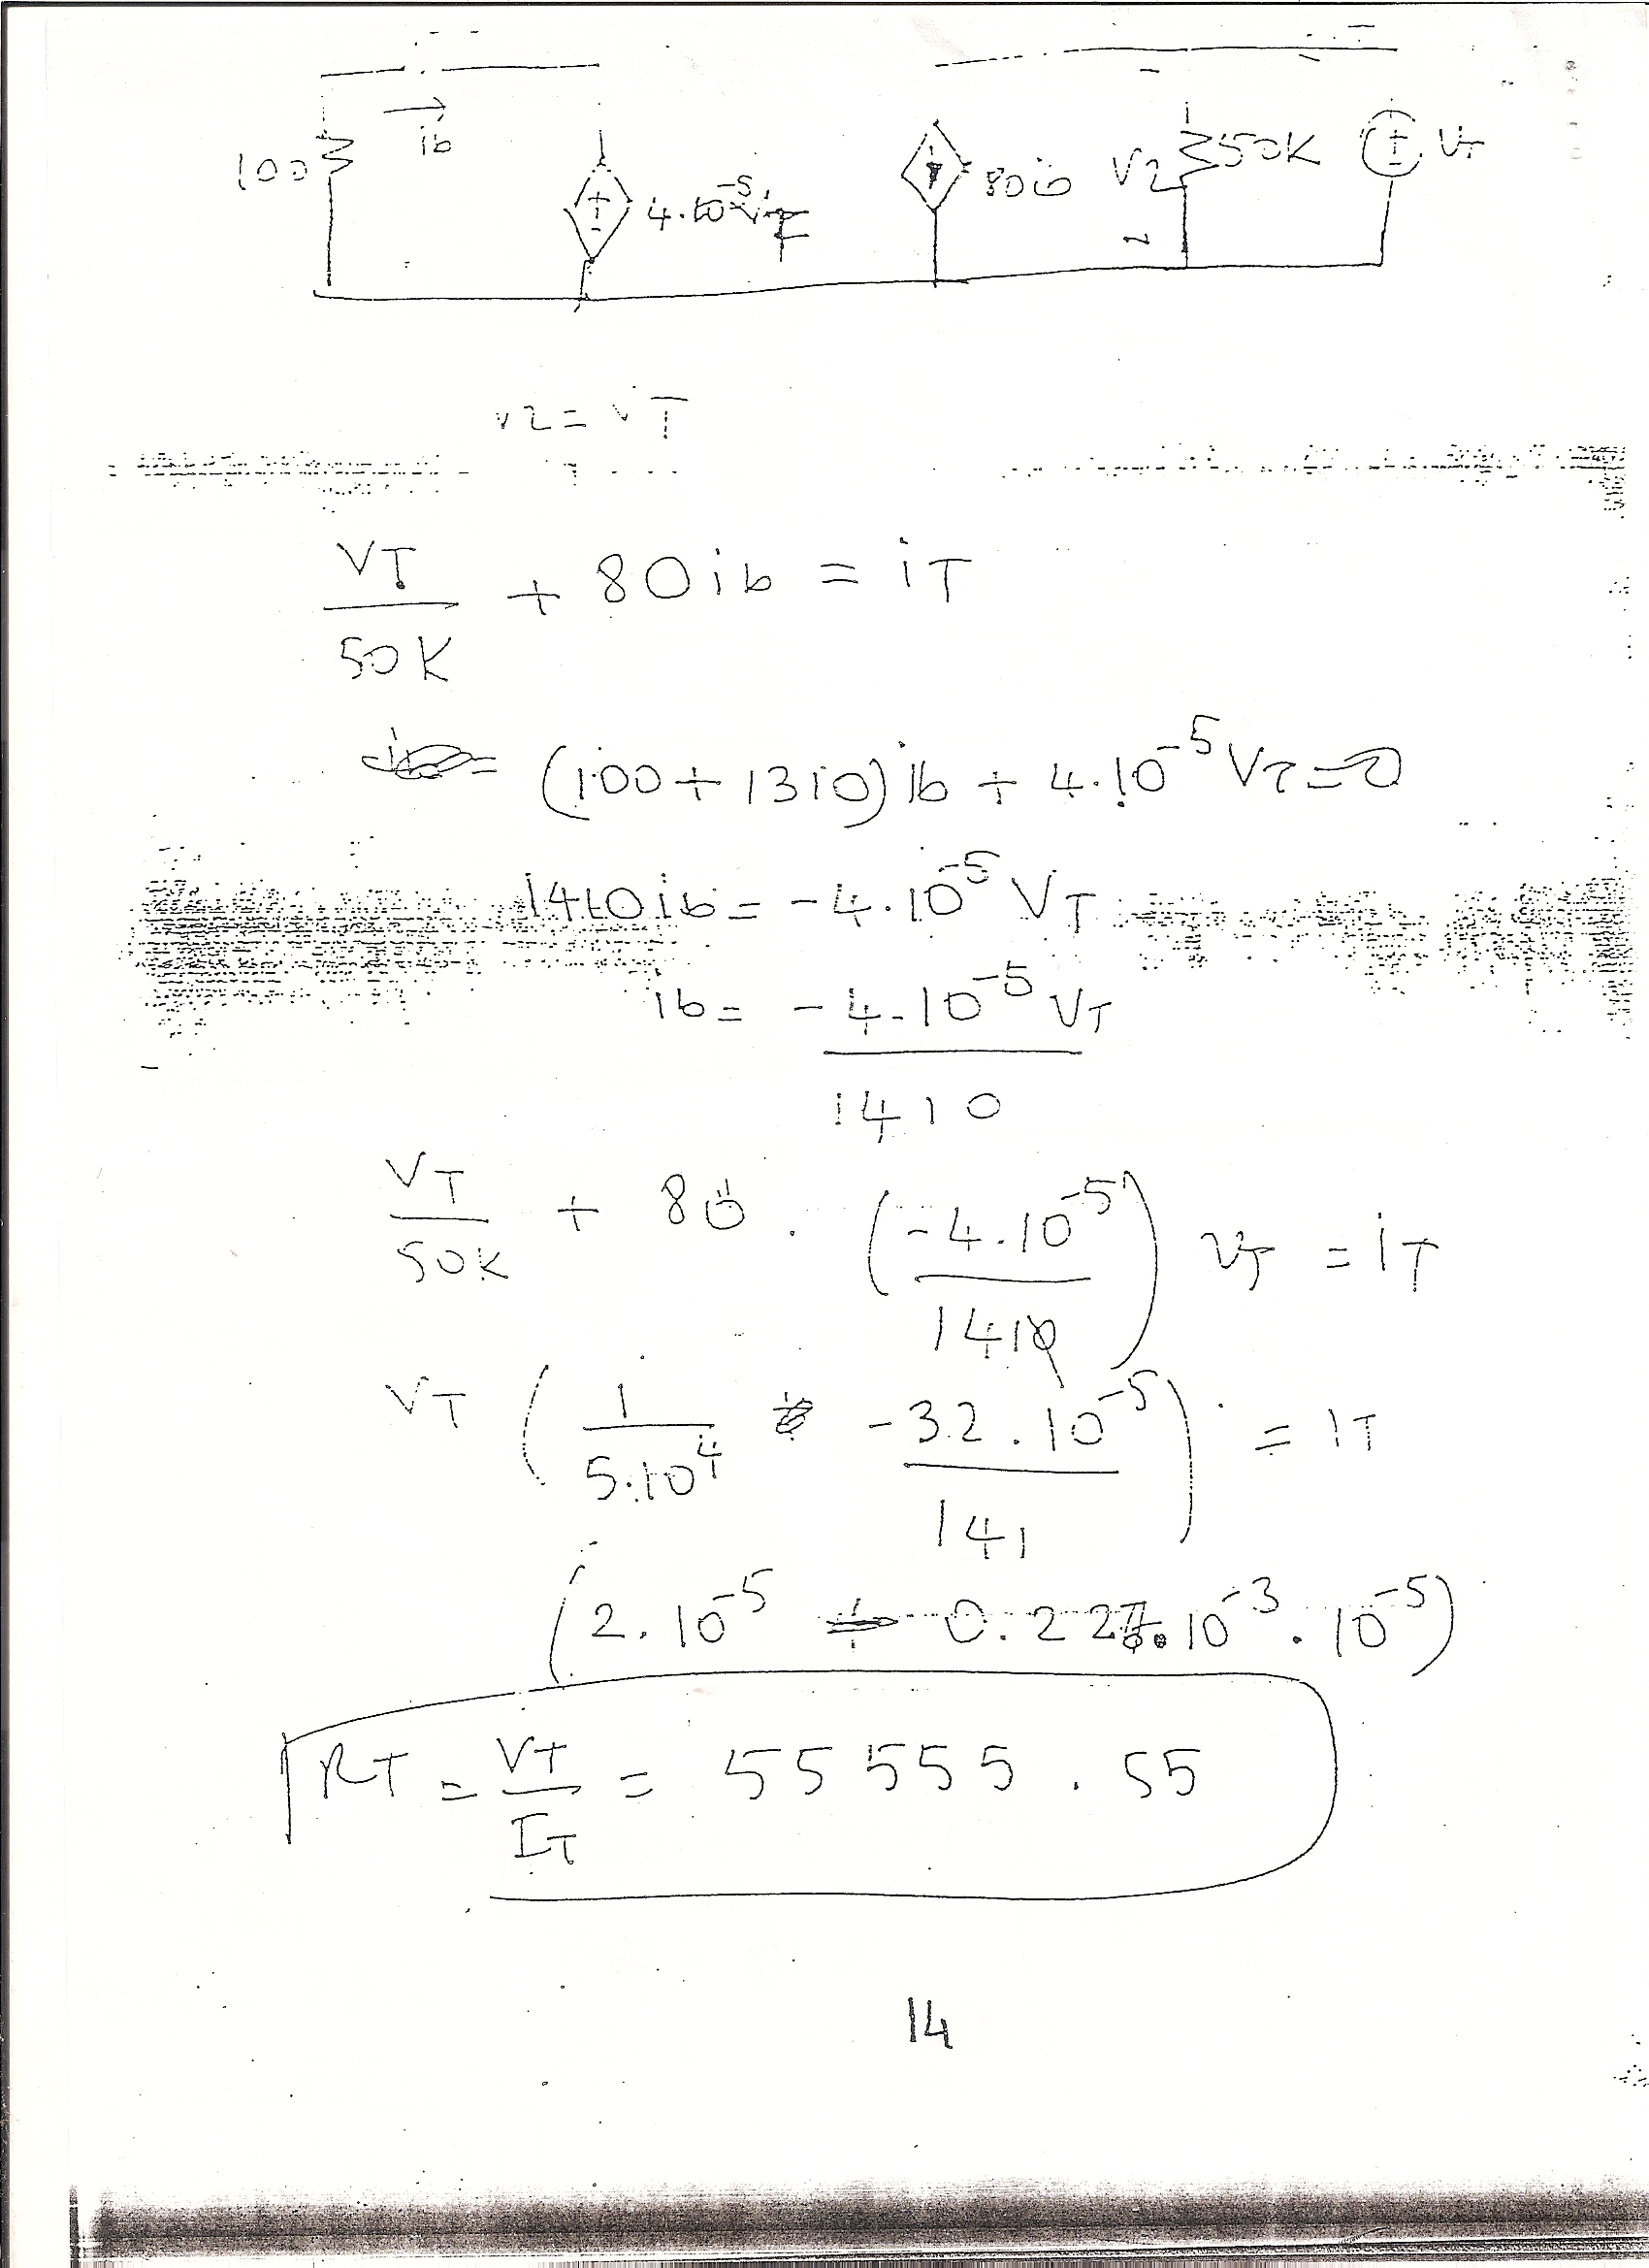 100 ib 4.10^-5 80ib V2 50K VT
V2 = VT
VT/50K + 80ib = iT
(100 + 1310) ib + 4.10^-5 VT = 0
1410 ib = -4.10^-5 VT
ib = -4.10^-5 VT / 1410
VT/50K + 80 . (-4.10^-5 / 1410) VT = iT
VT (1/5.10^4 -32.10^-5 / 141) = iT
(2.10^-5 0.22 . 10^-3 . 10^-5)
RT = VT/IT = 55555.55
14